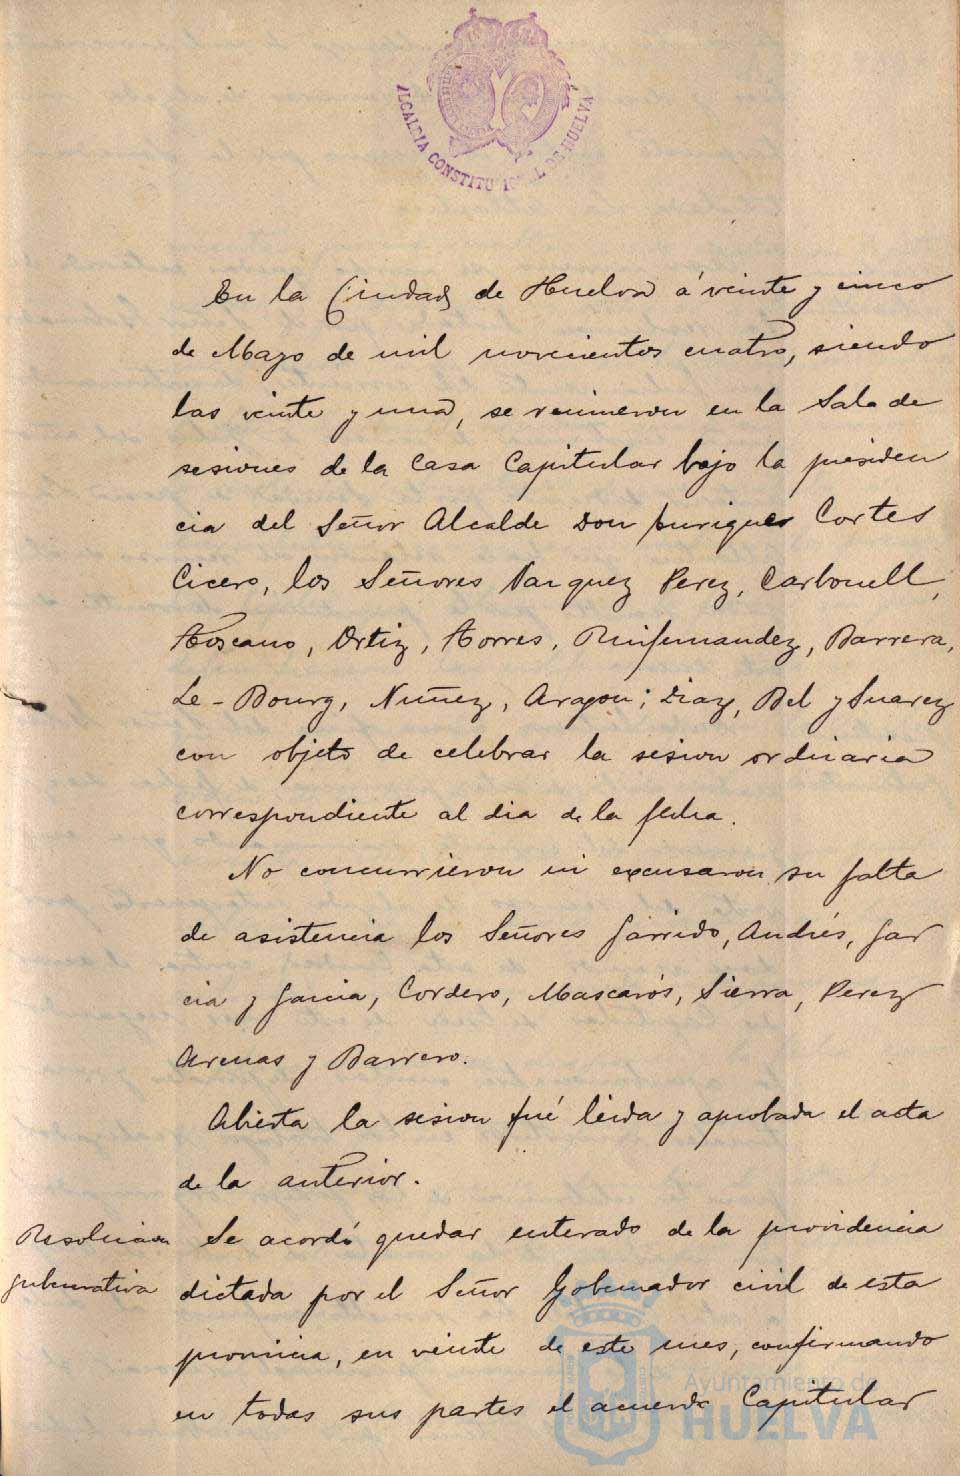 ALCALDIA CONSTITUCIONAL DE HUELVA
En la Ciudad de Huelva á veinte y cinco
de Mayo de mil novecientos cuatro, siendo
las veinte y una, se reunieron en la Sala de
sesiones de la Casa Capitular bajo la presiden
cia del Señor Alcalde Don Enrique Cortes
Cicero, los Señores Vazquez Perez, Carbonell,
Toscano, Ortiz, Torres, Ruifernandez, Barrera,
Le-Bourg, Nuñez, Aragon; Diaz, Bel y Suarez
con objeto de celebrar la sesion ordinaria
correspondiente al dia de la fecha.
No concurrieron ni excusaron su falta
de asistencia los Señores Garrido, Andrés, Gar
cia y Garcia, Cordero, Mascarós, Sierra, Perez
Arenas y Barrero.
Abierta la sesion fué leida y aprobada el acta
de la anterior.
Resolucion
gubernativa
Se acordó quedar enterado de la providencia
dictada por el Señor Gobernador civil de esta
provincia, en veinte de este mes, confirmando
en todas sus partes el acuerdo Capitular
Ayuntamiento de
HUELVA